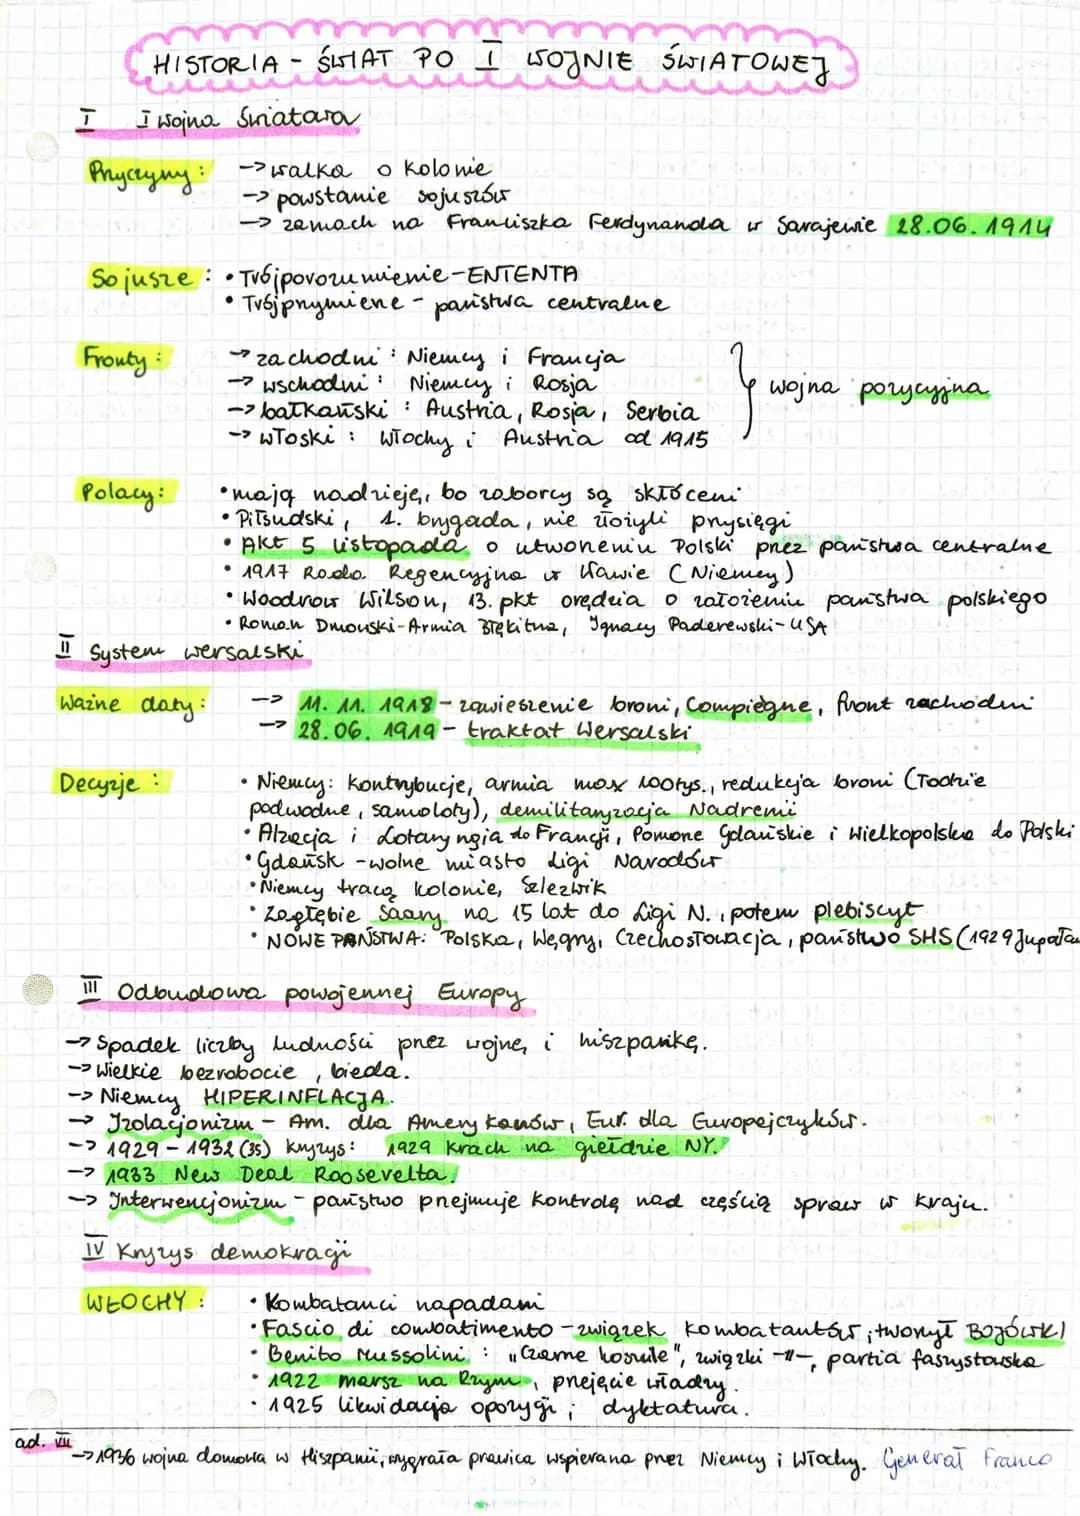 HISTORIA - ŚWIAT PO I WOJNIE ŚWIATOWEJ
I I wojna światowa
Przyczyny: -> walka o kolonie
-> powstanie sojuszów
-> zamach na Franciszka Ferdynanda w Sarajewie 28.06.1914
Sojusze: • Trójporozumienie - ENTENTA
• Trójprzymierze - państwa centralne
Fronty: -> zachodni: Niemcy i Francja
-> wschodni: Niemcy i Rosja
-> bałkański: Austria, Rosja, Serbia
-> włoski: Włochy i Austria od 1915
} wojna pozycyjna
Polacy: • mają nadzieję, bo zaborcy są skłóceni
• Piłsudski, 1. brygada, nie złożyli przysięgi
• Akt 5 listopada o utworzeniu Polski przez państwa centralne
• 1917 Rada Regencyjna w Wawie (Niemcy)
• Woodrow Wilson, 13. pkt orędzia o założeniu państwa polskiego
• Roman Dmowski - Armia Błękitna, Ignacy Paderewski - USA
II System wersalski
Ważne daty: -> 11.11.1918 - zawieszenie broni, Compiègne, front zachodni
-> 28.06.1919 - traktat Wersalski
Decyzje: • Niemcy: kontrybucje, armia max 100tys., redukcja broni (łodzie
podwodne, samoloty), demilitaryzacja Nadrenii
• Alzacja i Lotaryngia do Francji, Pomorze Gdańskie i Wielkopolskie do Polski
• Gdańsk - wolne miasto Ligi Narodów
• Niemcy tracą kolonie, Szlezwik
• Zagłębie Saary na 15 lat do Ligi N., potem plebiscyt
• NOWE PAŃSTWA: Polska, Węgry, Czechosłowacja, państwo SHS (1929 Jugosław
III Odbudowa powojennej Europy
-> Spadek liczby ludności przez wojnę i hiszpankę.
-> Wielkie bezrobocie, bieda.
-> Niemcy HIPERINFLACJA.
-> Izolacjonizm - Am. dla Amerykanów, Eur. dla Europejczyków.
-> 1929 - 1932 (35) kryzys: 1929 krach na giełdzie NY.
-> 1933 New Deal Roosevelta.
-> Interwencjonizm - państwo przejmuje kontrolę nad częścią spraw w kraju.
IV Kryzys demokracji
WŁOCHY: • Kombatanci napadani
• Fascio di combatimento - związek kombatantów; tworzył BOJÓWKI
• Benito Mussolini: "Czarne koszule", związki -"-, partia faszystowska
• 1922 marsz na Rzym, przejęcie władzy.
• 1925 likwidacja opozycji; dyktatura.
ad. VII
-> 1936 wojna domowa w Hiszpanii, wygrała prawica wspierana przez Niemcy i Włochy. Generał Franco